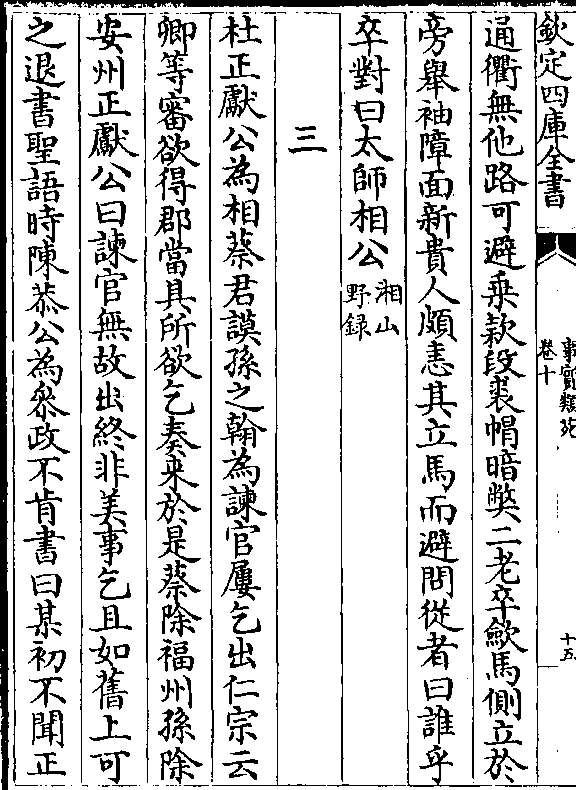 欽定四庫全書
事實類苑
卷十
十五
通衢無他路可避乗款段裘帽暗弊二老卒斂馬側立於
旁舉袖障面新貴人頗恚其立馬而避問從者曰誰乎
卒對曰太師相公湘山野録
三
杜正獻公為相蔡君謨孫之翰為諫官屢乞出仁宗云
卿等審欲得郡當具所欲乞奏来於是蔡除福州孫除
安州正獻公曰諫官無故出終非美事乞且如舊上可
之退書聖語時陳恭公為叅政不肯書曰某初不聞正